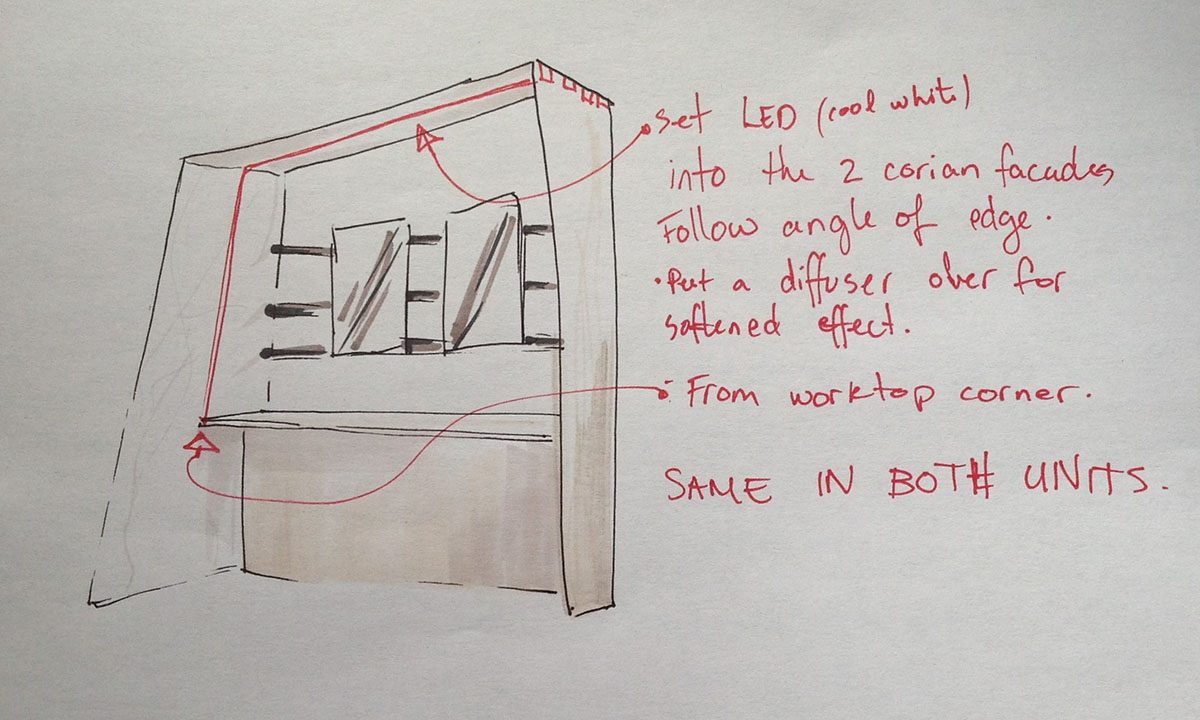 Set LED (cool white)
into the 2 corian facades
Follow angle of edge.
• Put a diffuser over for
softened effect.
• From worktop corner.
SAME IN BOTH UNITS.